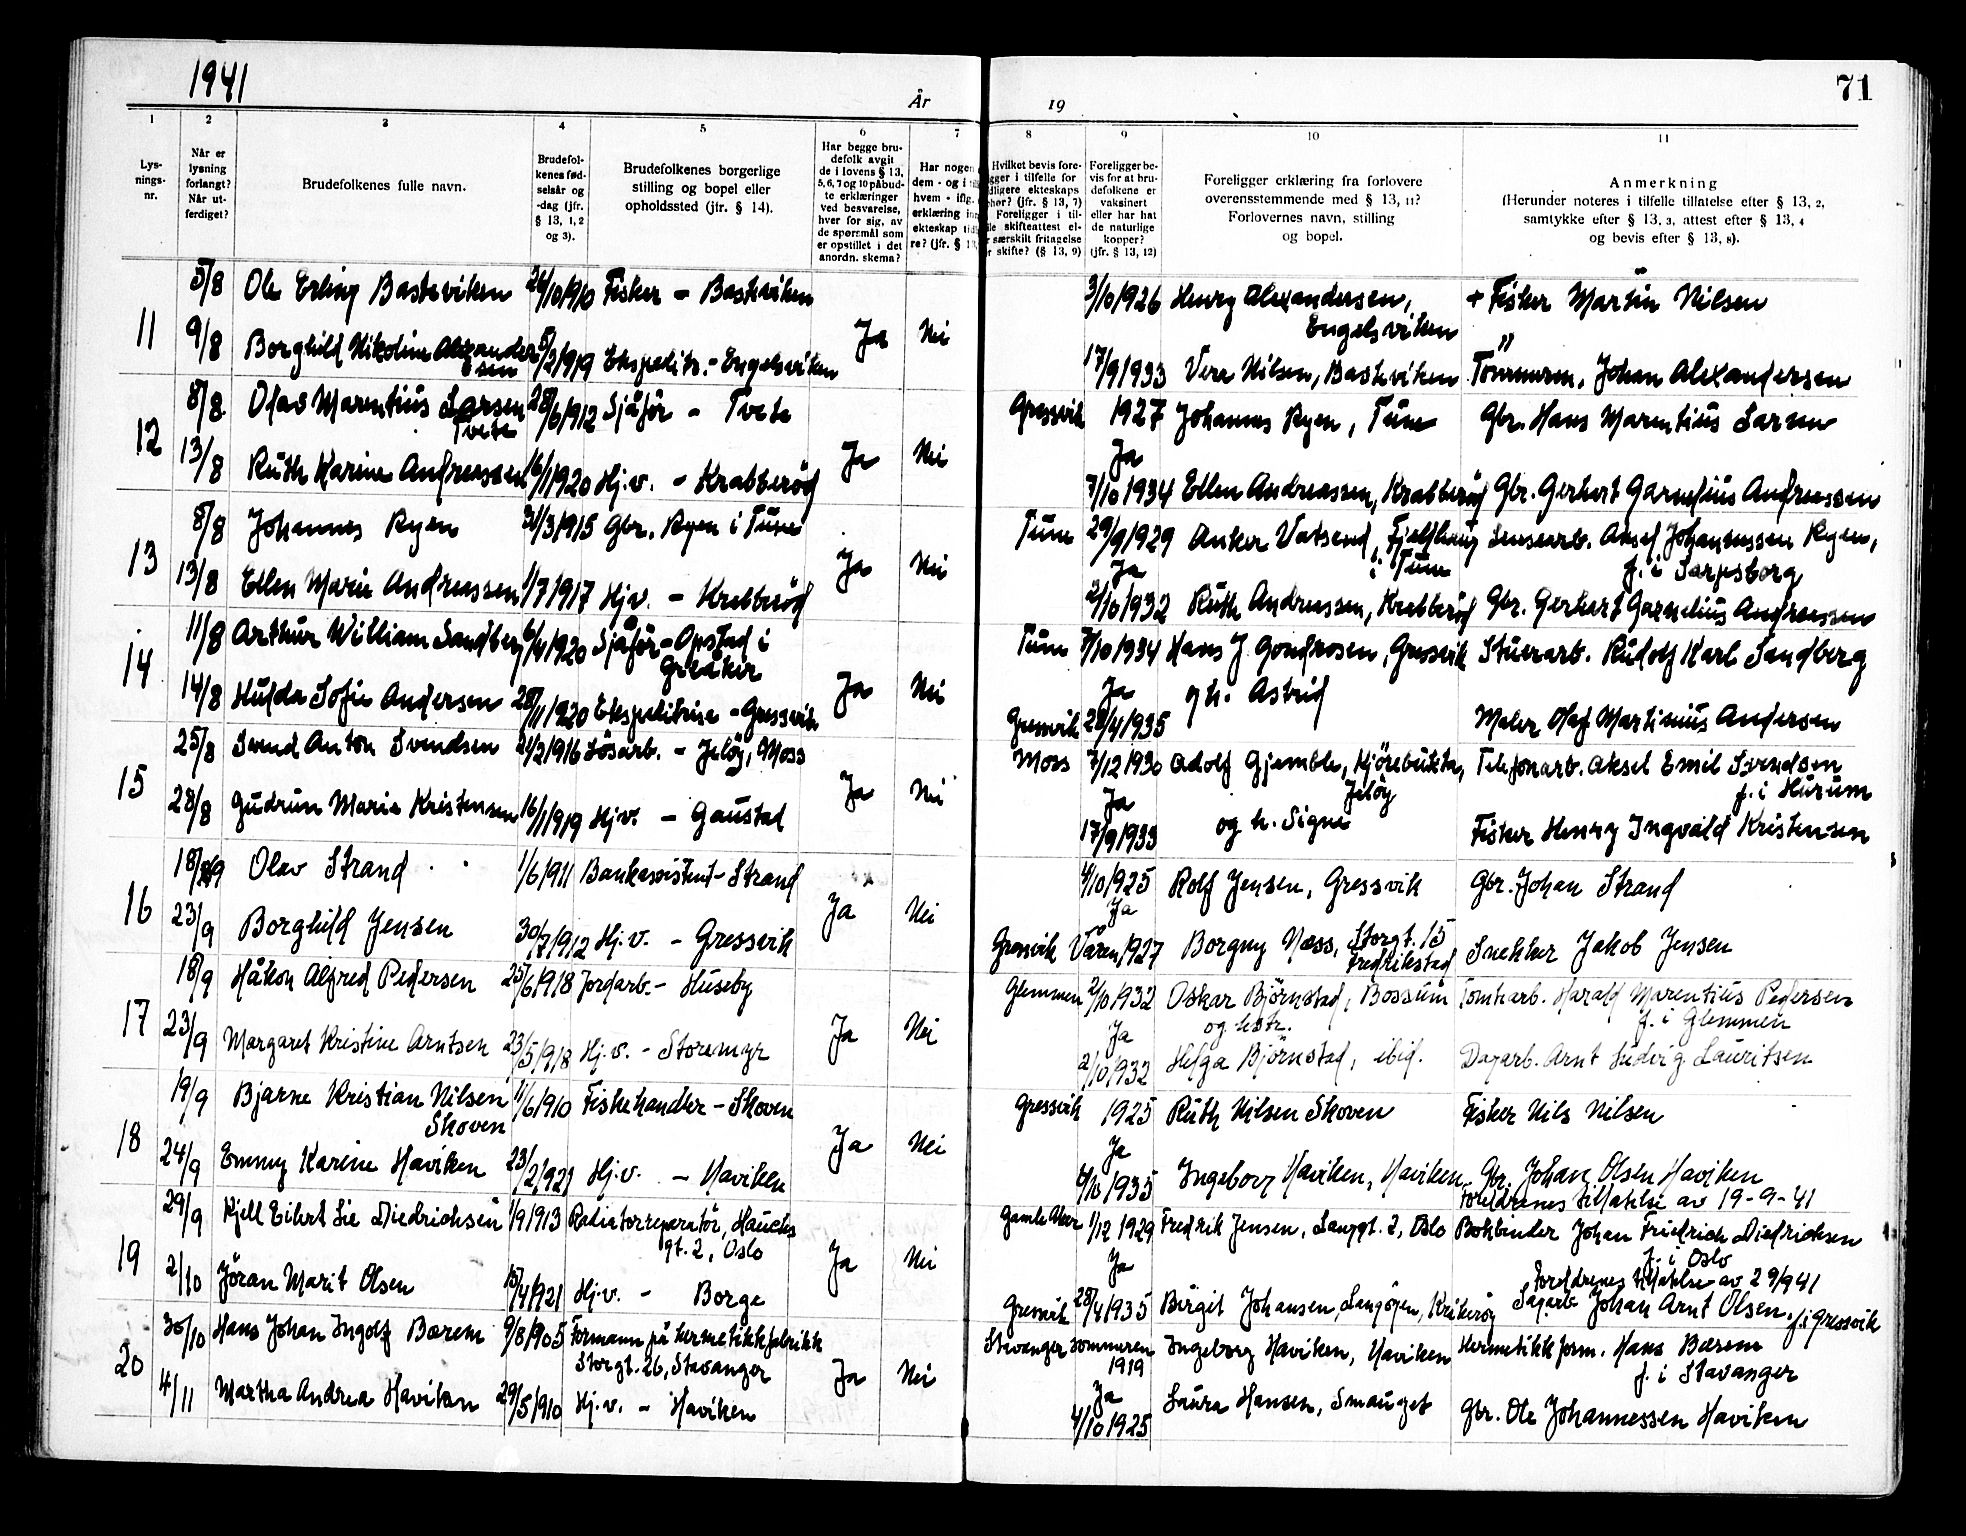 1941
År
19
71
1
2
3
4
5
6
7
8
9
10
11
Lys-
nings-
nr.
Når er
lysning
forlangt?
Når ut-
ferdiget?
Brudefolkenes fulle navn.
Brudefol-
kenes fød-
selsår og
-dag (jfr.
§ 13, 1, 2
og 3).
Brudefolkenes borgerlige
stilling og bopel eller
opholdssted (jfr. § 14).
Har begge bru-
defolk avgit
de i lovens § 13,
5, 6, 7 og 10 påbud-
te erklæringer
ved besvarelse,
hver for sig, av
de spørsmål som
er opstillet i det
anordn. skema?
Har nogen
dem - og i
hvem - iflg.
erklæring inn
ekteskap tid
re? (jfr. § 13
Hvilket bevis fore-
gger i tilfelle for
dligere ekteskaps
phør? (jfr. § 13, 7)
Foreligger i til-
lle skifteattest el-
r særskilt fritagelse
r skifte? (§ 13, 9)
Foreligger be-
vis for at bru-
defolkene er
vaksinert
eller har hat
de naturlige
kopper?
(jfr. § 13, 12)
Foreligger erklæring fra forlovere
overensstemmende med § 13, 11?
Forlovernes navn, stilling
og bopel.
Anmerkning
(Herunder noteres i tilfelle tillatelse efter § 13, 2,
samtykke efter § 13, 3, attest efter § 13, 4
og bevis efter § 13, 8).
11
5/8 Ole Erling Basteviken 26/10 1910 Fisker - Basteviken 3/10 1926 Henry Alexandersen, + Fisker Martin Nilsen
Engelsviken
Ja Nei
9/8 Borghild Nikoline Alexander 5/2 1919 Ekspeditr. - Engelsviken 17/9 1933 Vera Nilsen, Basteviken Tømmerm. Johan Alexandersen
sen
12
8/8 Olav Marentius Larsen 28/6 1912 Sjåfør - Tvete Gressvik 1927 Johannes Ryen, Tune Gbr. Hans Marentius Larsen
Tvete
Ja Nei Ja
13/8 Ruth Karine Andreassen 16/1 1920 Hj.v. - Krabberød 7/10 1934 Ellen Andreassen, Krabberød Gbr. Gerhart Garnelius Andreassen
13
8/8 Johannes Ryen 31/3 1915 Gbr. Ryen i Tune Tune 29/9 1929 Anker Vatsend, Fjeldhaug Lenssarb. Aksel Johannessen Ryen,
i Tune f. i Sarpsborg
Ja Nei Ja
13/8 Ellen Marie Andreassen 1/7 1917 Hjv. - Krabberød 2/10 1932 Ruth Andreassen, Krabberød Gbr. Gerhart Garnelius Andreassen
14
11/8 Arthur William Sandberg 6/4 1920 Sjåfør - Opstad i Tune 7/10 1934 Hans J. Gondrosen, Gressvik Stuerarb. Rudolf Karl Sandberg
Greåker
Ja Nei Ja og h. Astrid
14/8 Hulda Sofie Andersen 28/11 1920 Ekspeditrise - Gressvik Gressvik 28/4 1935 Maler Olaf Martinius Andersen
15
25/8 Svend Anton Svendsen 21/2 1916 Løsarb. - Jeløy, Moss Moss 7/12 1930 Adolf Gjemble, Kjørebukta, Telefonarb. Aksel Emil Svendsen
Jeløy f. i Hurum
Ja Nei Ja og h. Signe
28/8 Gudrun Marie Kristensen 16/1 1919 Hjv. - Gaustad 17/9 1933 Fisker Henry Ingvald Kristensen
16
18/9 Olav Strand 1/6 1911 Bankassistent - Strand 4/10 1925 Rolf Jensen, Gressvik Gbr. Johan Strand
Ja Nei Ja
23/9 Borghild Jensen 30/7 1912 Hj.v. - Gressvik Gressvik Våren 1927 Borgny Næss, Storgt. 15 Snekker Jakob Jensen
Fredrikstad
17
18/9 Håkon Alfred Pedersen 25/6 1918 Jordarb. - Huseby Glemmen 2/10 1932 Oskar Bjørnstad, Bossum Tomtarb. Harald Marentius Pedersen
og hstr. f. i Glemmen
Ja Nei Ja
23/9 Margaret Kristine Arntsen 23/5 1918 Hj.v. - Storemyr 2/10 1932 Helga Bjørnstad, ibid. Dagarb. Arnt Ludvig Lauritsen
18
19/9 Bjarne Kristian Nilsen 11/6 1910 Fiskehandler - Skoven Gressvik 1925 Ruth Nilsen Skoven Fisker Nils Nilsen
Skoven
Ja Nei Ja
24/9 Emmy Karine Haviken 23/2 1921 Hj.v. - Haviken 6/10 1935 Ingeborg Haviken, Haviken Gbr. Johan Olsen Haviken
Foreldrenes tillatelse av 19-9-41
19
29/9 Kjell Eilert Lie Diedrichsen 1/9 1913 Radiatorreparatør, Hauchs Gamle Aker 1/12 1929 Fredrik Jensen, Langgt. 2, Oslo Bokbinder Johan Friedrich Diedrichsen
gt. 2, Oslo f. i Oslo
Ja Nei Ja Foreldrenes tillatelse av 29/9 41
2/10 Jøran Marit Olsen 15/4 1921 Hj.v. - Borge Gressvik 28/4 1935 Birgit Johansen, Langøyen, Krikerøy Sagarb. Johan Arnt Olsen, f. i Gressvik
20
30/10 Hans Johan Ingolf Bærem 9/8 1905 Formann på hermetikkfabrikk Stavanger Sommeren Ingeborg Haviken, Haviken Hermetikkform. Hans Bærem
Storgt. 26, Stavanger 1919 f. i Stavanger
Ja Nei Ja
4/11 Martha Andrea Haviken 29/5 1910 Hj.v. - Haviken 4/10 1925 Laura Hansen, Smauget Gbr. Ole Johannessen Haviken